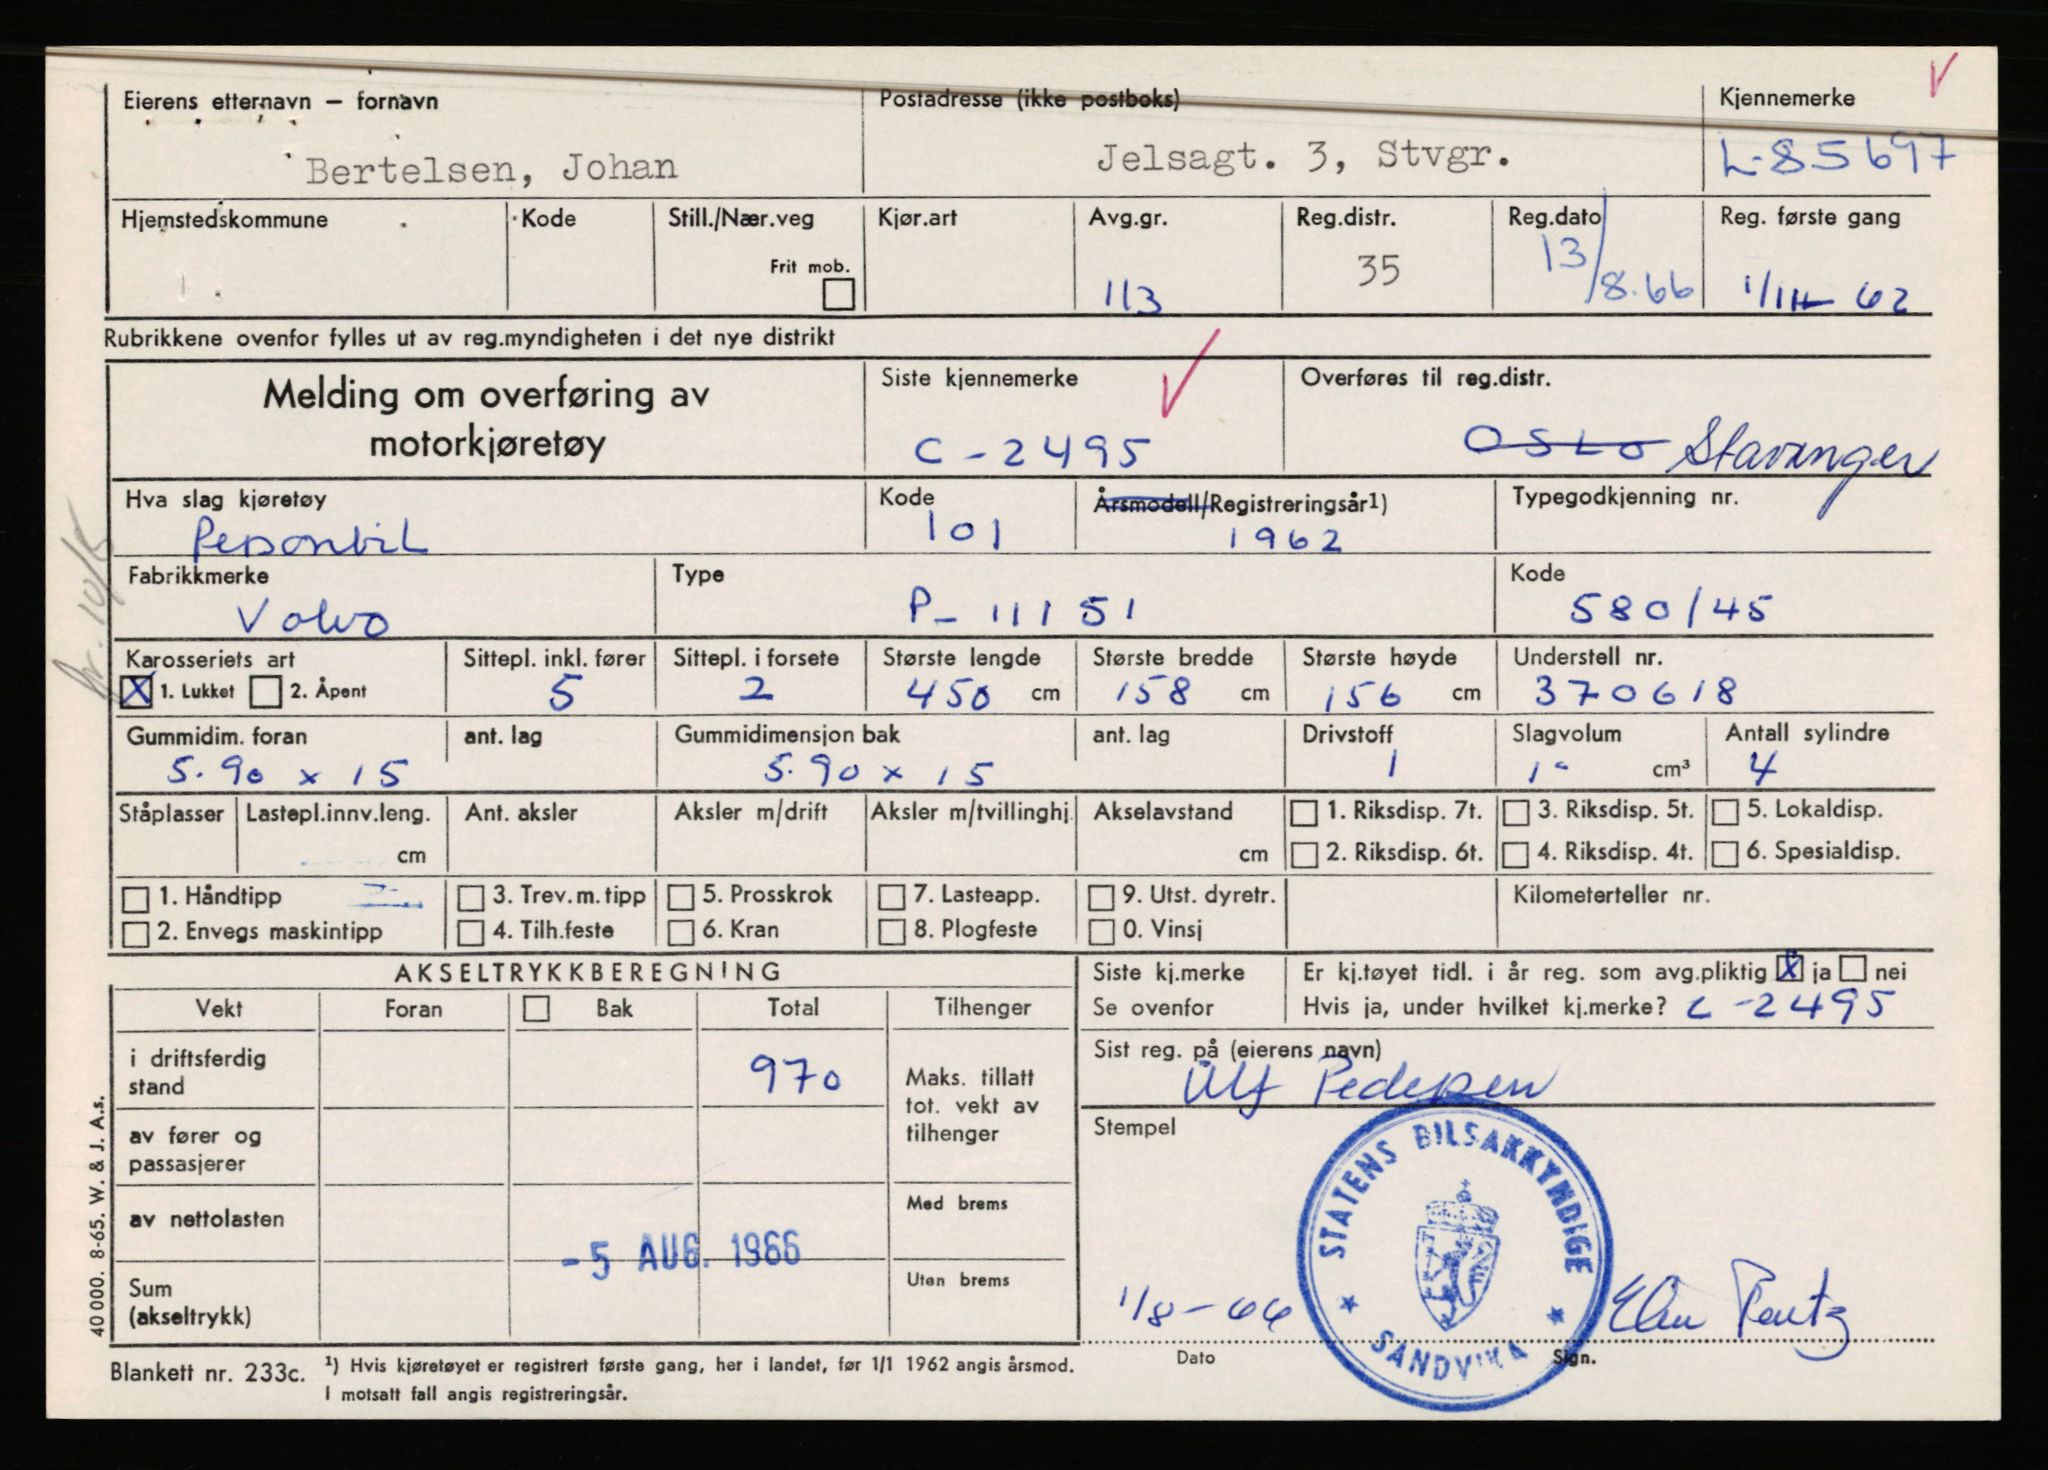 Eierens etternavn – fornavn
Bertelsen, Johan
Postadresse (ikke postboks)
Jelsagt. 3, Stvgr.
Kjennemerke
L-85697
Hjemstedskommune
Kode
Still./Nær.veg
Frit mob.
Kjør.art
Avg.gr.
113
Reg.distr.
35
Reg.dato
13/8.66
Reg. første gang
62
Rubrikkene ovenfor fylles ut av reg.myndigheten i det nye distrikt
Melding om overføring av
motorkjøretøy
Siste kjennemerke
C-2495
Overføres til reg.distr.
OSLO Stavanger
Hva slag kjøretøy
Personbil
Kode
101
Årsmodell/Registreringsår1)
1962
Typegodkjenning nr.
Fabrikkmerke
Volvo
Type
P-11151
Kode
580/45
Karosseriets art
1. Lukket 2. Åpent
Sittepl. inkl. fører
5
Sittepl. i forsete
2
Største lengde
450 cm
Største bredde
158 cm
Største høyde
156 cm
Understell nr.
370618
Gummidim. foran
5.90 x 15
ant. lag
Gummidimensjon bak
5.90 x 15
ant. lag
Drivstoff
1
Slagvolum
cm³
Antall sylindre
4
Ståplasser
Lastepl.innv.leng.
cm
Ant. aksler
Aksler m/drift
Aksler m/tvillinghj.
Akselavstand
cm
1. Riksdisp. 7t.
2. Riksdisp. 6t.
3. Riksdisp. 5t.
4. Riksdisp. 4t.
5. Lokaldisp.
6. Spesialdisp.
1. Håndtipp
2. Envegs maskintipp
3. Trev.m.tipp
4. Tilh.feste
5. Prosskrok
6. Kran
7. Lasteapp.
8. Plogfeste
9. Utst. dyretr.
0. Vinsj
Kilometerteller nr.
AKSELTRYKKBEREGNING
Vekt
Foran
Bak
Total
Tilhenger
i driftsferdig
stand
970
Maks. tillatt
tot. vekt av
tilhenger
av fører og
passasjerer
av nettolasten
Med brems
Sum
(akseltrykk)
Uten brems
- 5 AUG. 1966
Siste kj.merke
Se ovenfor
Er kj.tøyet tidl. i år reg. som avg.pliktig ja nei
Hvis ja, under hvilket kj.merke? C-2495
Sist reg. på (eierens navn)
Ulf Pedersen
Stempel
STATENS BILSAKKYNDIGE
SANDVIKA
1/8-66
Dato
Sign.
40 000. 8-65. W. & J. A.s.
Blankett nr. 233c.
1) Hvis kjøretøyet er registrert første gang, her i landet, før 1/1 1962 angis årsmod.
I motsatt fall angis registreringsår.